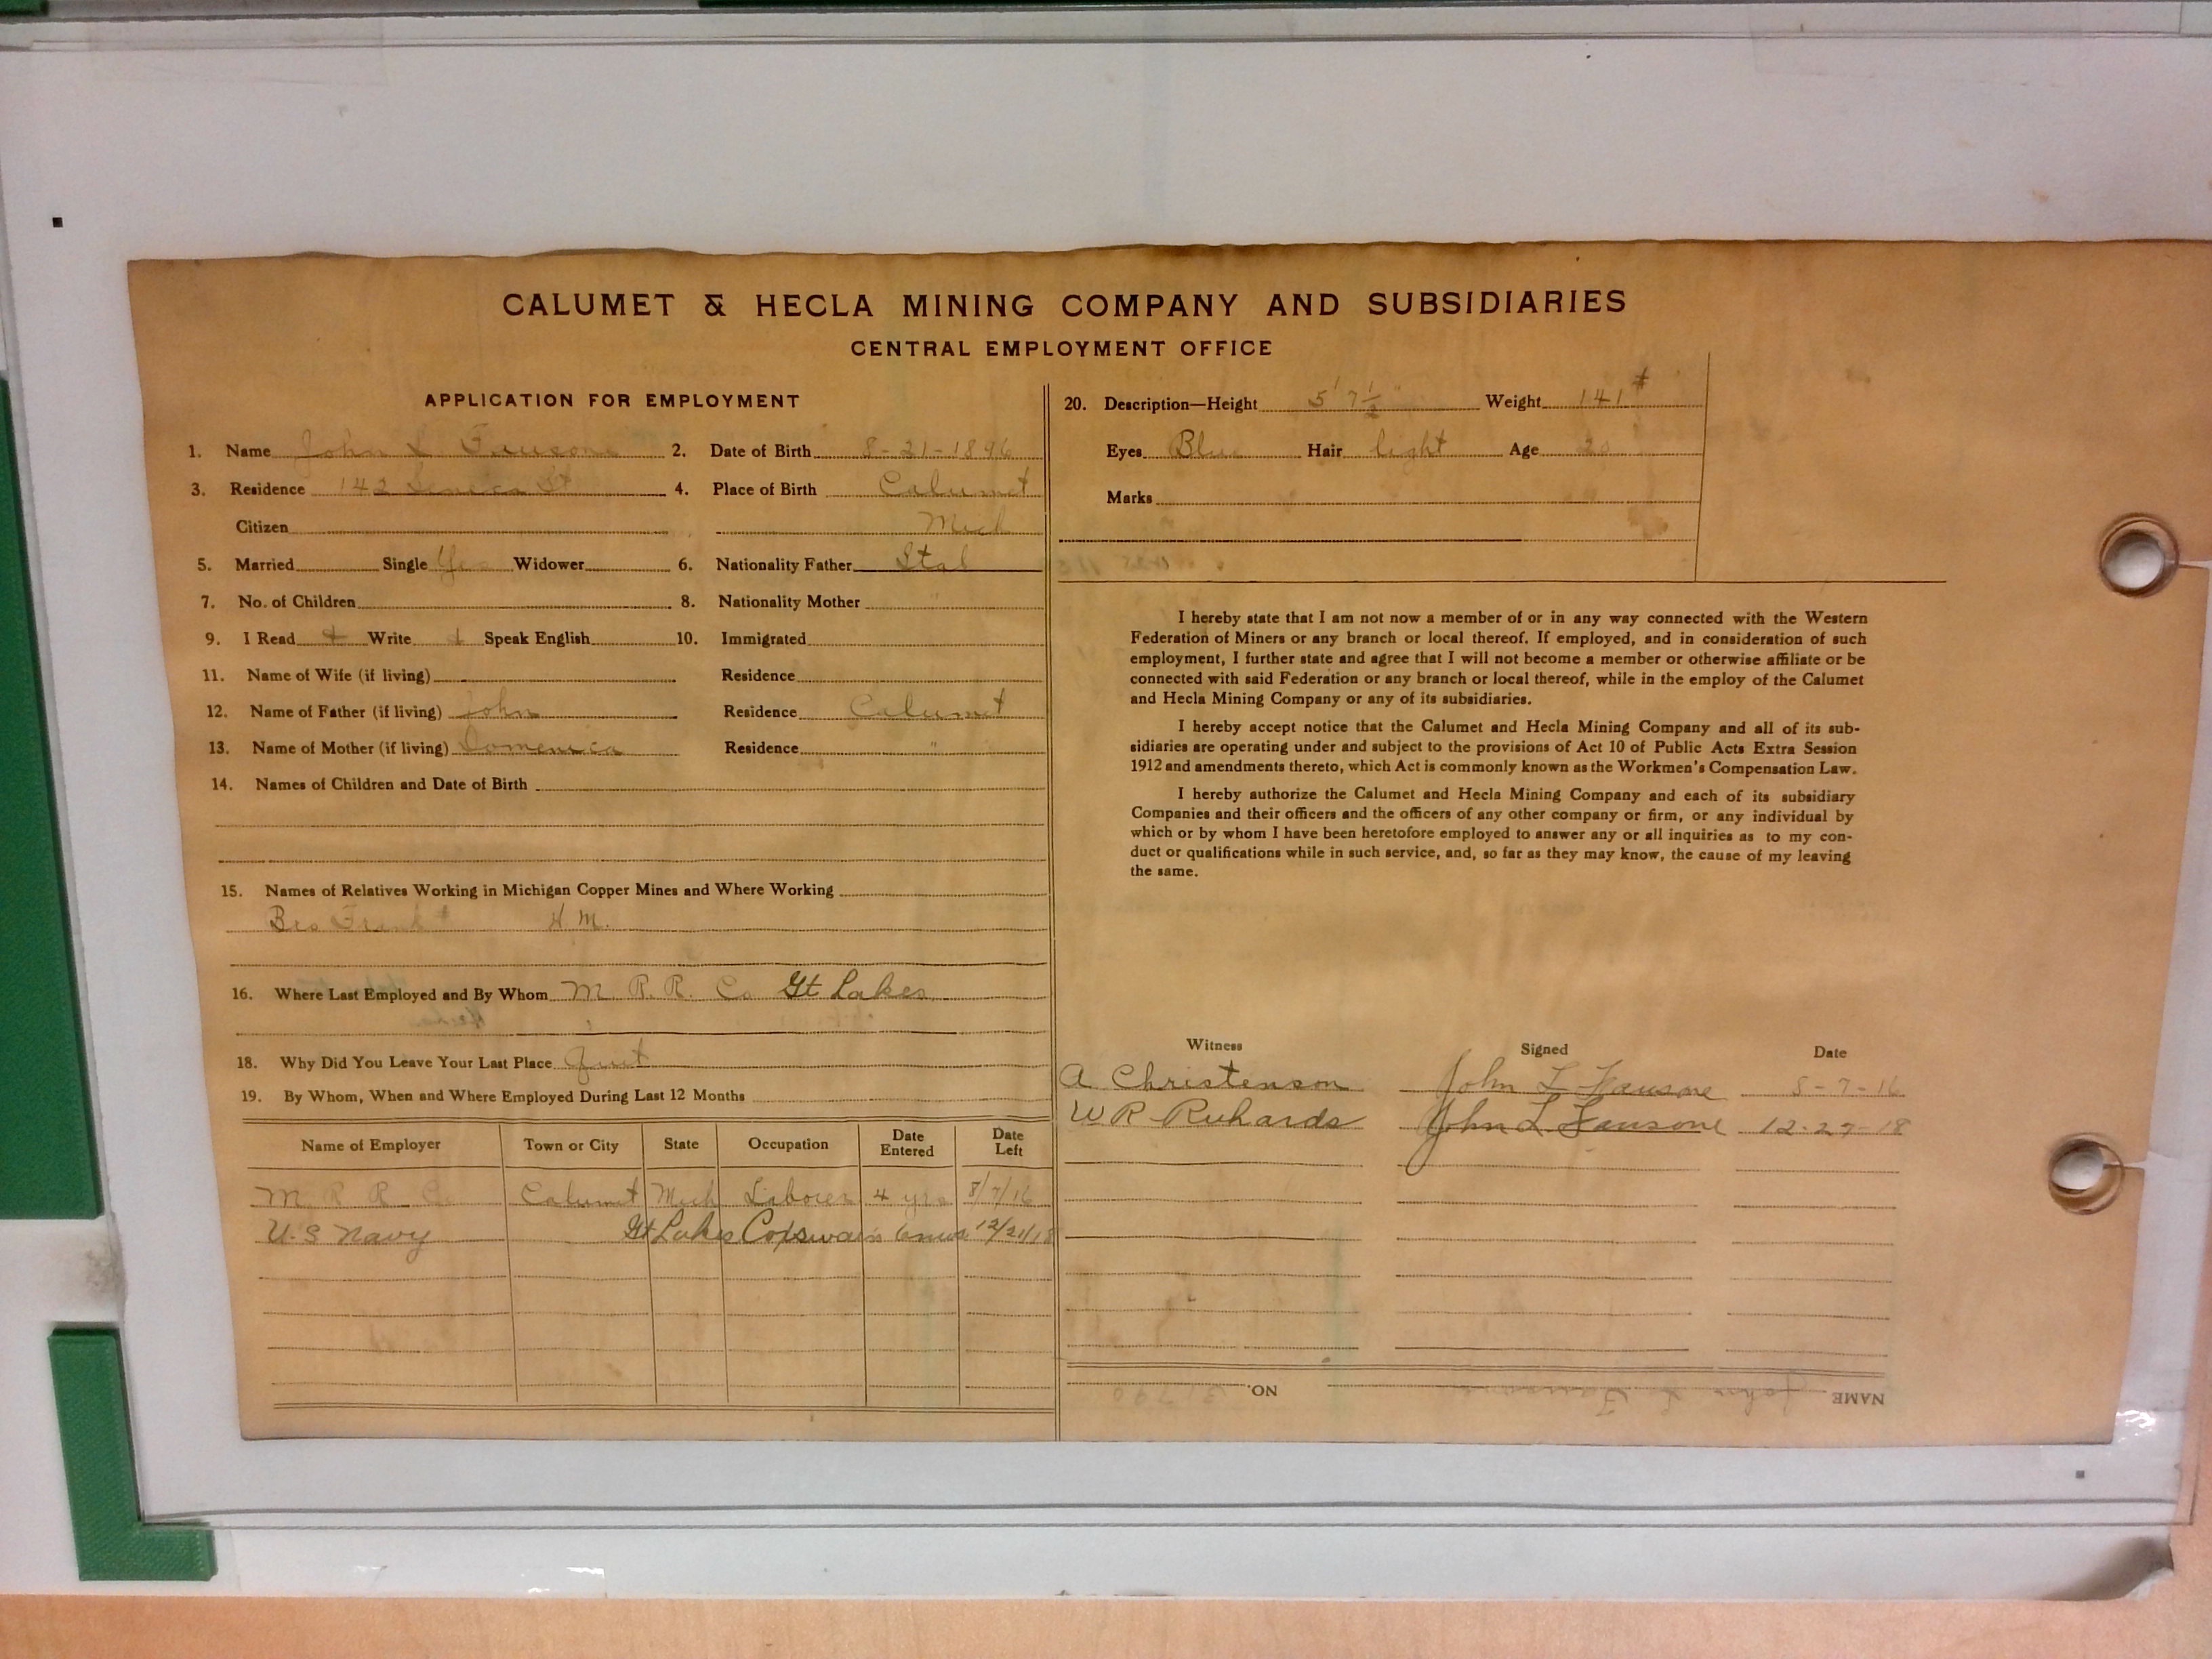 CALUMET & HECLA MINING COMPANY AND SUBSIDIARIES
CENTRAL EMPLOYMENT OFFICE
APPLICATION FOR EMPLOYMENT
1. Name John L Fausone 2. Date of Birth 8-21-1896
3. Residence 142 Seneca St 4. Place of Birth Calumet
Citizen Mich
5. Married Single Yes Widower 6. Nationality Father Ital
7. No. of Children 8. Nationality Mother "
9. I Read + Write + Speak English 10. Immigrated
11. Name of Wife (if living) Residence
12. Name of Father (if living) John Residence Calumet
13. Name of Mother (if living) Domenica Residence "
14. Names of Children and Date of Birth
15. Names of Relatives Working in Michigan Copper Mines and Where Working
Bro Frank H. M.
16. Where Last Employed and By Whom M R. R. Co Gt Lakes
18. Why Did You Leave Your Last Place Quit
19. By Whom, When and Where Employed During Last 12 Months
Name of Employer Town or City State Occupation Date Entered Date Left
M R R Co Calumet Mich Laborer 4 yrs 8/7/16
U. S Navy Gt Lakes Coxswain 6 mos 12/21/18
20. Description—Height 5' 7 1/2" Weight 141#
Eyes Blue Hair light Age 20
Marks
I hereby state that I am not now a member of or in any way connected with the Western
Federation of Miners or any branch or local thereof. If employed, and in consideration of such
employment, I further state and agree that I will not become a member or otherwise affiliate or be
connected with said Federation or any branch or local thereof, while in the employ of the Calumet
and Hecla Mining Company or any of its subsidiaries.
I hereby accept notice that the Calumet and Hecla Mining Company and all of its sub-
sidiaries are operating under and subject to the provisions of Act 10 of Public Acts Extra Session
1912 and amendments thereto, which Act is commonly known as the Workmen's Compensation Law.
I hereby authorize the Calumet and Hecla Mining Company and each of its subsidiary
Companies and their officers and the officers of any other company or firm, or any individual by
which or by whom I have been heretofore employed to answer any or all inquiries as to my con-
duct or qualifications while in such service, and, so far as they may know, the cause of my leaving
the same.
Witness Signed Date
A Christenson John L Fausone 8-7-16
W R Richards John L Fausone 12-27-18
NAME John L. Fausone NO. 31790